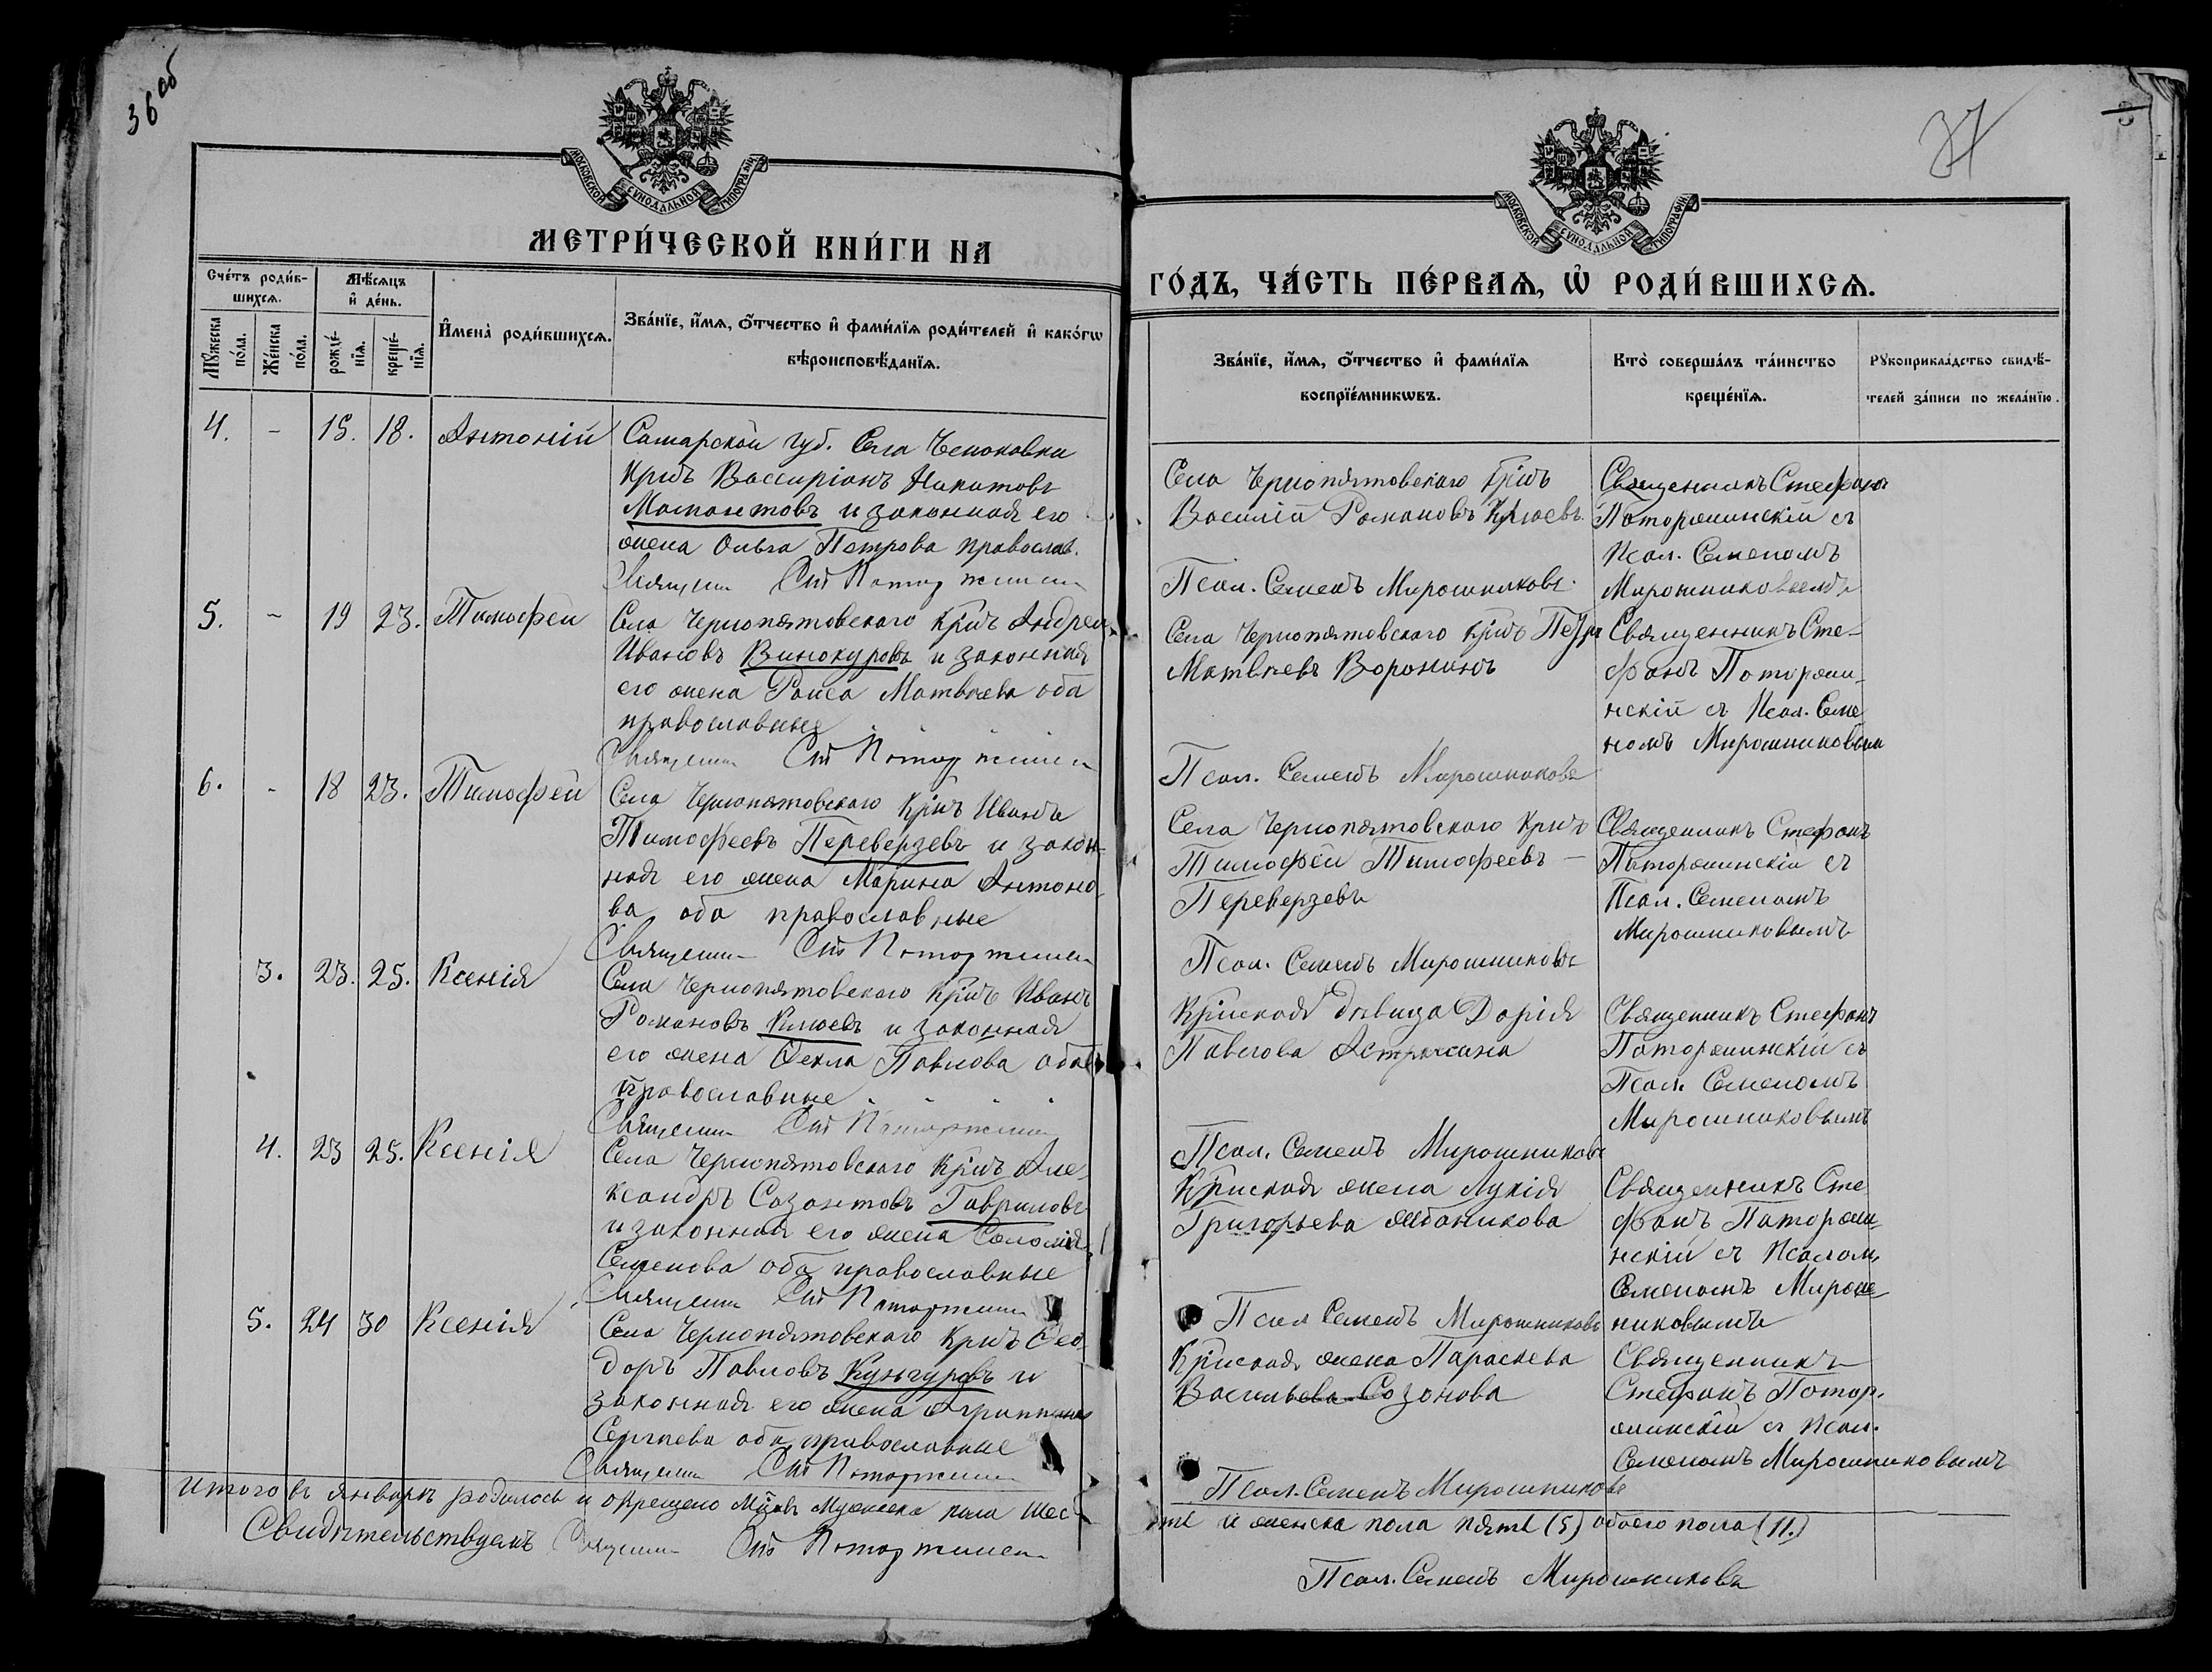 36 об
МОСКОВСКОЙ СѴНОДАЛЬНОЙ ТИПОГРАФІИ
МЕТРИ́ЧЕСКОЙ КНИ́ГИ НА
Сче́тъ роди́в-
шихсѧ.
Мѣ́сѧцъ
и҆ де́нь.
И҆мена̀ роди́вшихсѧ.
Зва́нїе, и҆́мѧ, о҆́тчество и҆ фами́лїѧ роди́телей и҆ како́гѡ
вѣроисповѣ́данїѧ.
Мꙋ́жеска
по́ла.
Же́нска
по́ла.
рожде́-
нїѧ.
креще́-
нїѧ.
4. - 15. 18. Антоній Самарской губ. Села Чесноковки
Крнъ Виссаріонъ
Мамонтовъ и законная его
жена Ольга Петрова православ.
Священ. Сте
5. - 19 23. Тимофей Села Чернопятовскаго Крнъ Андрей
Ивановъ Винокуровъ и законная
его жена Раиса Матвѣева оба
православные
Священ. Сте
6. - 18 23. Тимофей Села Чернопятовскаго Крнъ Иванъ
Тимофеевъ Переверзевъ и закон-
ная его жена Марина Антоно-
ва оба православные
Священ. Сте
3. 23. 25. Ксенія Села Чернопятовскаго Крнъ Иванъ
Романовъ Клюевъ и законная
его жена Ѳекла Павлова оба
православные
Священ. Сте
4. 23 25. Ксенія Села Чернопятовскаго Крнъ Але-
ксандръ Созонтовъ Гавриловъ
и законная его жена Соломія
Семенова оба православные
Священ. Сте
5. 24 30 Ксенія Села Чернопятовскаго Крнъ Ѳео-
доръ Павловъ Кунгуровъ и
законная его жена Агриппина
Сергѣева оба православные
Священ. Сте
Итого въ январѣ родилось и окрещено Мужеска пола шес-
Свидѣтельствуемъ Священ. Сте
37
МОСКОВСКОЙ СѴНОДАЛЬНОЙ ТИПОГРАФІИ
ГО́ДЪ, ЧА́СТЬ ПЕ́РВАѦ, Ѽ РОДИ́ВШИХСѦ.
Зва́нїе, и҆́мѧ, о҆́тчество и҆ фами́лїѧ
воспрїе́мникѡвъ.
Кто̀ соверша́лъ та́инство
креще́нїѧ.
Рꙋкоприкла́дство свидѣ́-
телей за́писи по жела́нїю.
Села Чернопятовскаго Крнъ
Василій Романовъ Клюевъ.
Псал. Семенъ Мирошниковъ.
Священникъ Стефанъ
Поторжинскій съ
Псал. Семеномъ
Мирошниковымъ
Села Чернопятовскаго Крнъ Петръ
Матвѣевъ Воронинъ
Псал. Семенъ Мирошниковъ
Священникъ Сте-
фанъ Поторжи-
нскій съ Псал. Семе
номъ Мирошниковым
Села Чернопятовскаго Крнъ
Тимофей Тимофеевъ -
Переверзевъ
Псал. Семенъ Мирошниковъ
Священникъ Стефанъ
Поторжинскій съ
Псал. Семеномъ
Мирошниковымъ
Крнская дѣвица Дарія
Павлова
Псал. Семенъ Мирошниковъ
Священникъ Стефанъ
Поторжинскій съ
Псал. Семеномъ
Мирошниковымъ
Крнская жена Лукія
Григорьева
Псал Семенъ Мирошниковъ
Священникъ Сте
фанъ Поторжи-
нскій съ Псалом.
Семеномъ Мирош-
никовымъ
Крнская жена Параскева
Васильева Созонова
Псал. Семенъ Мирошниковъ
Священникъ
Стефанъ Потор-
жинскій съ Псал.
Семеномъ Мирошниковымъ
ть и женска пола пять (5) обоего пола (11.)
Псал. Семенъ Мирошниковъ